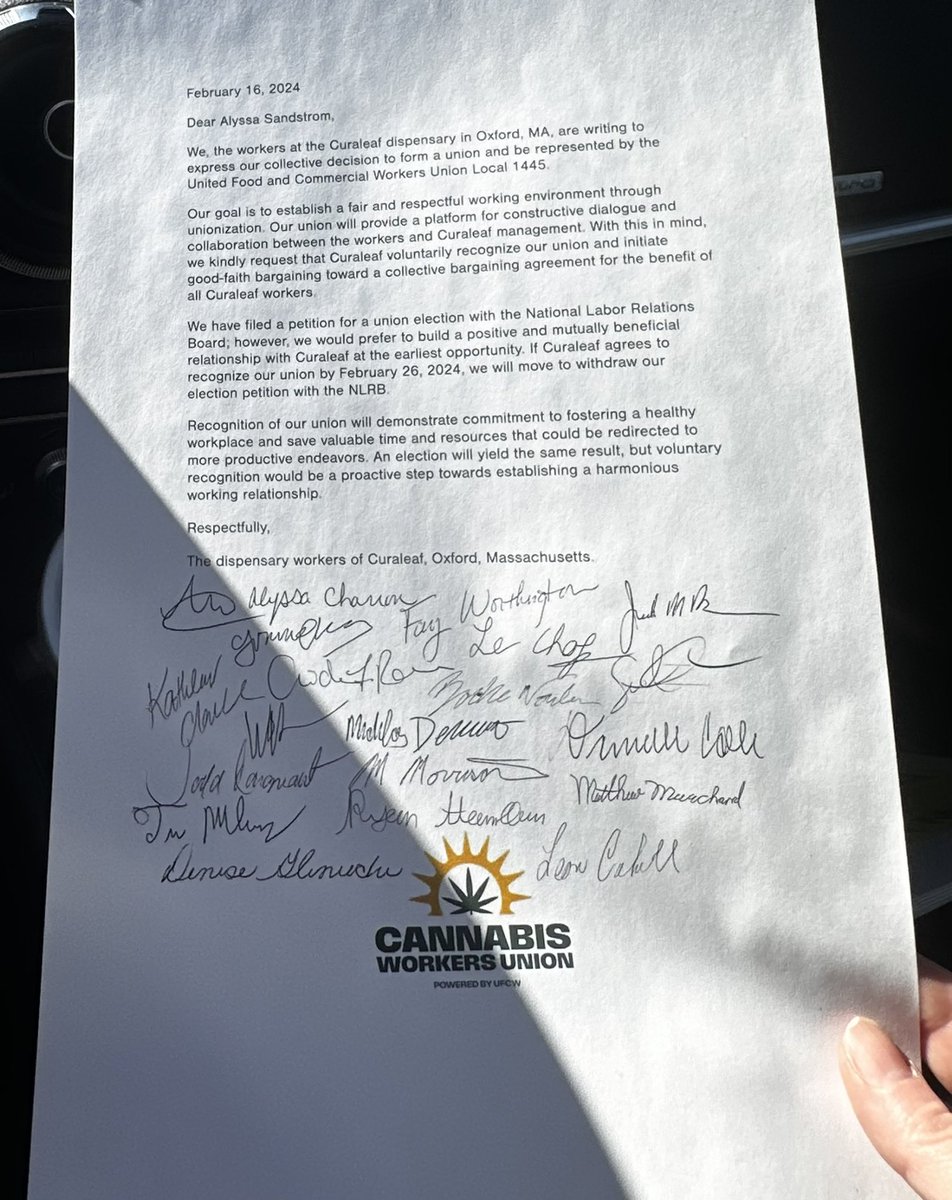 February 16, 2024
Dear Alyssa Sandstrom,
We, the workers at the Curaleaf dispensary in Oxford, MA, are writing to
express our collective decision to form a union and be represented by the
United Food and Commercial Workers Union Local 1445.
Our goal is to establish a fair and respectful working environment through
unionization. Our union will provide a platform for constructive dialogue and
collaboration between the workers and Curaleaf management. With this in mind,
we kindly request that Curaleaf voluntarily recognize our union and initiate
good-faith bargaining toward a collective bargaining agreement for the benefit of
all Curaleaf workers.
We have filed a petition for a union election with the National Labor Relations
Board; however, we would prefer to build a positive and mutually beneficial
relationship with Curaleaf at the earliest opportunity. If Curaleaf agrees to
recognize our union by February 26, 2024, we will move to withdraw our
election petition with the NLRB.
Recognition of our union will demonstrate commitment to fostering a healthy
workplace and save valuable time and resources that could be redirected to
more productive endeavors. An election will yield the same result, but voluntary
recognition would be a proactive step towards establishing a harmonious
working relationship.
Respectfully,
The dispensary workers of Curaleaf, Oxford, Massachusetts.
Alyssa
Fay Worthington
Kathleen
Danielle
Matthew Marchand
Denise
Leon Cahill
CANNABIS
WORKERS UNION
POWERED BY UFCW